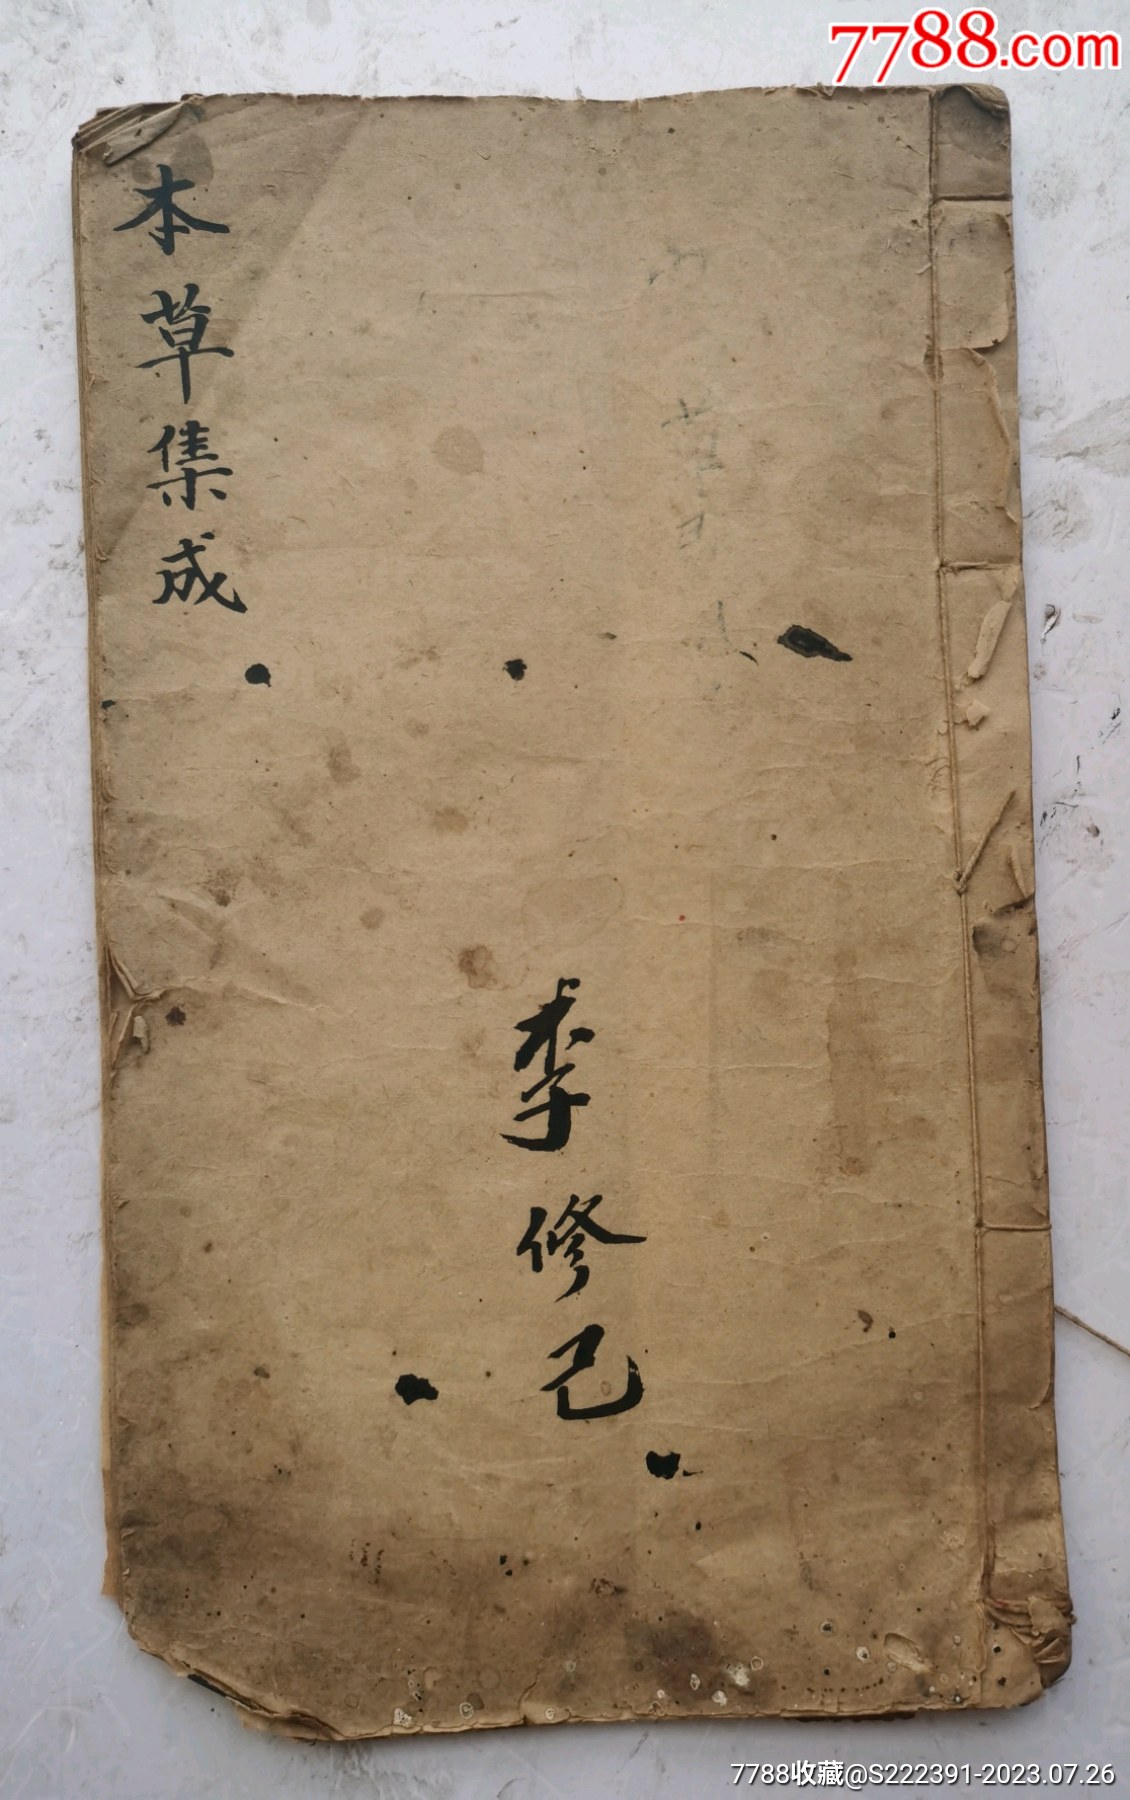 7788.com
本草集成
李修己
7788收藏@S222391-2023.07.26